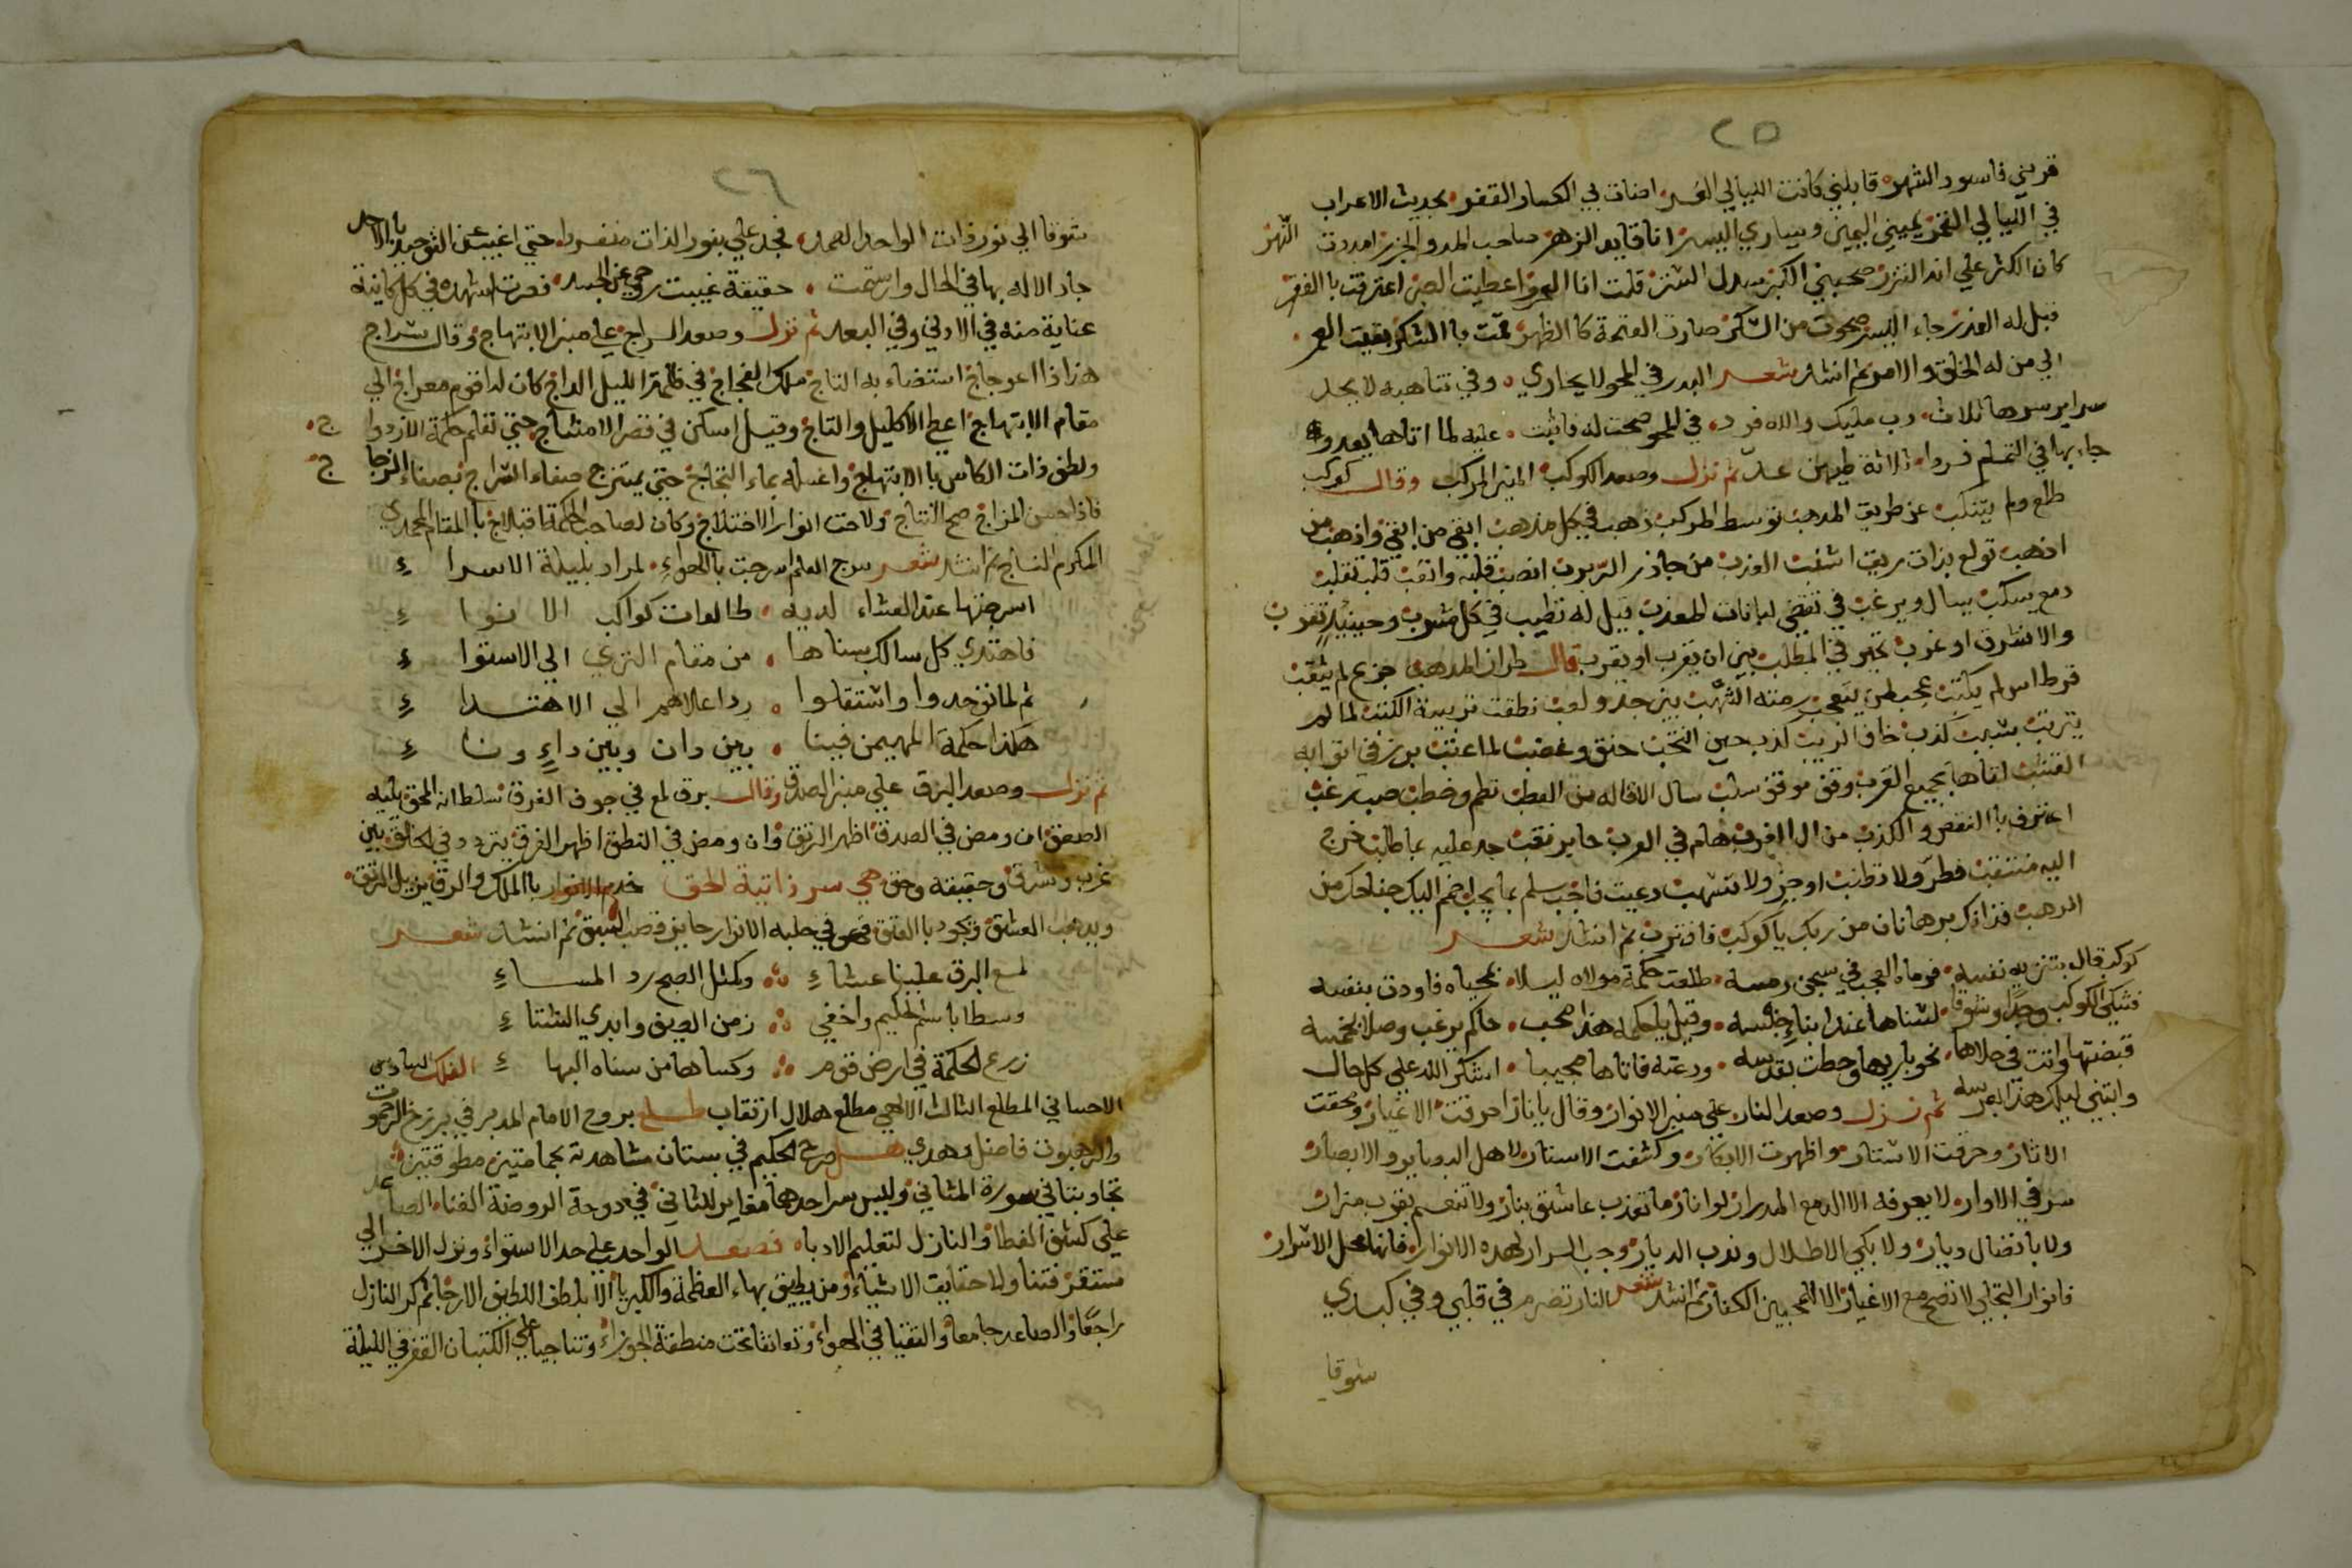 ٢٥
قربني فاسود الشهر قابلني كانت الليالي الغر اضات بي الكساد القفر بحديث الاعراب
في الليالي القمر يميني اليمين ويساري اليسر انا قايد الزهر صاحب المد والجزر امددت النهر
كان الكثر علي انه النزر صحبني الكبر سدل الستر قلت انا العمر اعطيت الصبر اعترفت بالفقر
قبل له العذر جاء اليسر صحوت من السكر صارت العتمة كالظهر قمت بالشكر بقيت العمر
الي من له الخلق والامر ثم انشد شعر البدر في المحو لا يجاري وفي تناهيه لا يحد
سراير سرها ثلاث رب مليك والله فرد في المحو صحت له فاثبت عليه لما اتاها يعدو
جاء بها في التمام فردا ثلاثة طيهن عد ثم نزل وصعد الكوكب المنير المركب وقال كوكب
طلع ولم يتنكب عن طريق المذهب توسط المركب ذهب في كل مذهب
اذهب تولع بذات ريق اشنب من جاذر الربرب
دمع يسكب يسال ويرغب في تقضي لبانات المعذب قيل له تطيب في كل مشرب وحينيذ تقرب
والا شرق او غرب تحير في المطلب بين ان يغرب او يقرب قال طراز المذهب جزع لم يثقب
قرطاس لم يكتب عجب لمن يتعجب منه الشهب بين جد ولعب نطقت تربية الكتب لما لم
يتريب بسبب كذب خاف الريب كذب حين انتخب حنق وغضب لما عتب برز في اثوابه
القشب لقاها بجميع القرب وقف موقف سلب سال الاقاله من العطب نظم وخطب صب رغب
اعترف بالنقص والكذب من ال الغرب هام في العرب حاير نقب جد عليه بما طلب خرج
اليه منتقب فطر ولا تطنب اوجز ولا تسهب دعيت فاجب سلم بما يجب اضمم اليك جناحك من
الرهب فذانك برهانان من ربك يا كوكب فاقترب ثم انشد شعر
كوكب قال بتنزيه نفسه فرماه العجب في سجن رمسه طلعت حكمة مولاه ليلا بمحياه فاودت بنفسه
فشكي الكوكب وجدا وشوقا لسناها عند ابناء جنسه وقيل يا حكمه هذا صحب حاكم يرغب وصلا بخمسه
قبضتها وانثنت في حلاها نحو باريها وحطت بقدسه ودعته فاتاها مجيبا اشكر الله علي كل حال
وابتني ليلك هذا بعرسه ثم نزل وصعد النار علي منبر الانوار وقال يا نار احرقت الاغيار ومحقت
الاثار وخرقت الاستار واظهرت الابكار وكشفت الاستار لاهل البصاير والابصار
سر في الاوار لا يعرفه الا الدمع المدرار لو انار ما تعذب عاشق بنار ولا تنعم بقرب مزار
ولا باتصال ديار ولا بكي الاطلال وندب الديار وجب السرار لهذه الانوار فانها محل الاسرار
فانوار التجلي لا تصح مع الاغيار الا للمحبين الكفار ثم انشد شعر النار تضرم في قلبي وفي كبدي
شوقا
٢٦
شوقا الي نور ذات الواحد الصمد فجد علي بنور الذات منفردا حتي اغيب عن التوحيد بالاحد
جاد الاله بها في الحال وارتسمت حقيقة غيبت روحي عن الجسد فصرت اشهده في كل كاينة
عناية منه في الادني وفي البعد ثم نزل وصعد السراج علي منبر الابتهاج وقال سراج
هز اذا اعوجاج استضاء به التاج ملك الفجاج في ظلمة الليل الداج كان له اقوم معراج الي
مقام الابتهاج اعطي الاكليل والتاج وقيل اسكن في قصر الامشاج حتي تقام حكمة الازدواج
ولطف ذات الكاس بالابتهاج واغسله بماء الثجاج حتي يمتزج صفاء السراج بصفاء الزجاج
فاذا حسن المزاج صح النتاج ولاحت انوار الاختلاج وكان لصاحب الحكمة اقبلاج بالمقام المحمدي
المكرم الناج ثم انشد شعر سرج العلم اسرجت بالهواء لمراد بليلة الاسراء
اسرجتها عند العشاء لديه طالعات كواكب الانواء
فاهتدي كل سالك بسناها من مقام الثري الي الاستواء
ثم لما توحدوا واستقلوا رد اعلاهم الي الاهتداء
هكذا حكمة المهيمن فينا بين دان وبين داء وناء
ثم نزل وصعد البرق علي منبر الصدق وقال برق لمع في جوف الغرق سلطانه المحق يليه
الصعق ان ومض في الصدق اظهر الرتق وان ومض في النطق اظهر الفرق يتردد في الخافق بين
غرب وشرق وحقيقة وحق هي سر ذاتية الحق خدم الانوار بالملك والرق يزيل الرتق
ويذهب العشق ويجود بالعتق فهو في حلبة الانوار حايز قصب السبق ثم انشد شعر
لمع البرق علينا عشاء وكمثل الصبح رد المساء
وسطا باسم الحكيم واخفي زمن الصيف وابدي الشتاء
زرع الحكمة في ارض قوم وكساها من سناه البهاء الفلك السادس
الاحساني المطلع الثالث الالهي مطلع هلال ارتقاب طلع بروح الامام المدبر في برزخ الرحموت
والرهبوت فاضل وهدي هل صرح الحكيم في بستان مشاهدته بحمامتين مطوقتين
تجاوبتا في صورة المثاني وليس سر احدهما مغاير للثاني في دوحة الروضة الغناء الصاعد
علي كشف الغطاء والنازل لتعليم الادباء فصعد الواحد علي حد الاستواء ونزل الاخر الي
مستقر فتناولا حقايق الاشياء ومن يطيق بهاء العظمة والكبرياء الا بلطف اللطيف الارجا ثم كر النازل
راجعا والصاعد جامعا والتقيا في الهواء وتعانقا تحت منطقة الجوزاء وتناجيا علي الكثبان القفر في الليلة